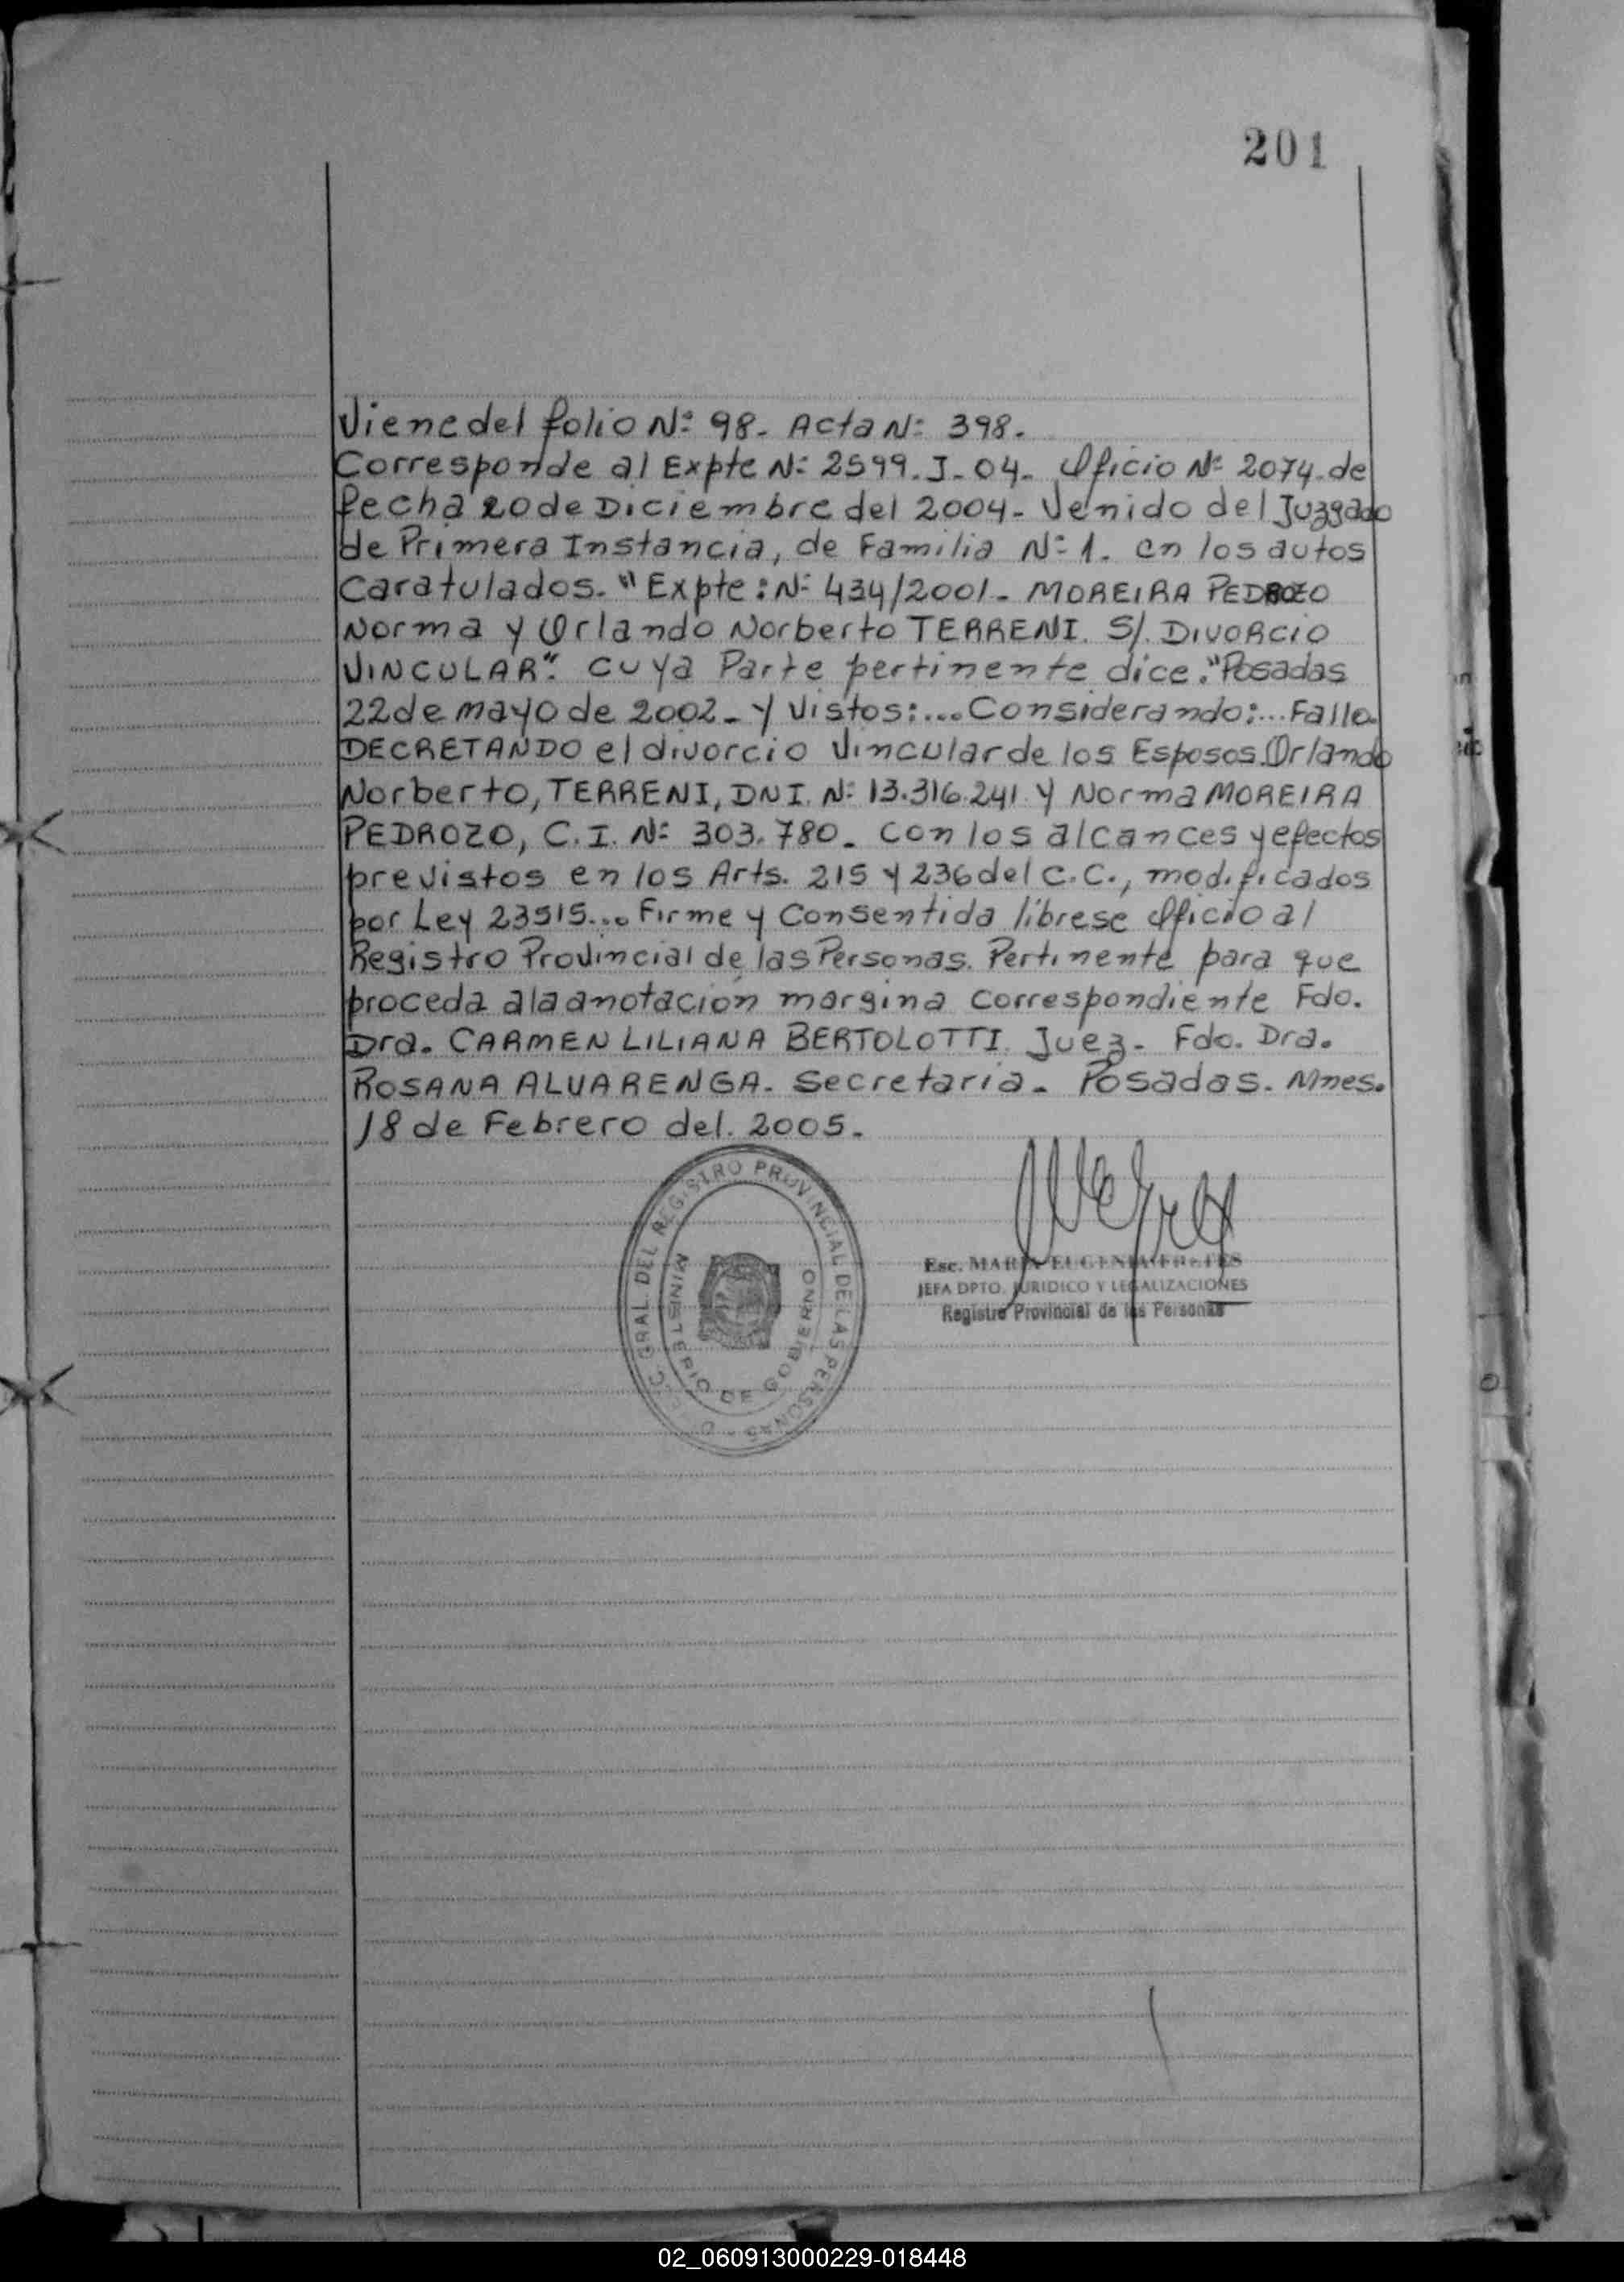 201
Viene del folio Nº 98. Acta Nº 398.
Corresponde al Expte Nº 2599. J-04. Oficio Nº 2074. de
fecha 20 de Diciembre del 2004- Venido del Juzgado
de Primera Instancia, de Familia Nº 1. en los autos
Caratulados. "Expte: Nº 434/2001- MOREIRA PEDROZO
Norma y Orlando Norberto TERRENI. S/. DIVORCIO
VINCULAR". cuya Parte pertinente dice: "Posadas
22 de mayo de 2002- y Vistos:... Considerando:... Fallo-
DECRETANDO el divorcio Vincular de los Esposos. Orlando
Norberto, TERRENI, DNI. Nº 13.316.241. y Norma MOREIRA
PEDROZO, C.I. Nº 303.780. con los alcances y efectos
previstos en los Arts. 215 y 236 del C.C., modificados
por Ley 23515... Firme y Consentida líbrese Oficio al
Registro Provincial de las Personas. Pertinente para que
proceda a la anotación margina correspondiente Fdo.
Dra. CARMEN LILIANA BERTOLOTTI. Juez- Fdo. Dra.
ROSANA ALVARENGA. Secretaria- Posadas. Mnes.
18 de Febrero del. 2005.
GRAL. DEL REGISTRO PROVINCIAL DE LAS PERSONAS
MINISTERIO DE GOBIERNO
Esc. MARIA EUGENIA
JEFA DPTO. JURIDICO Y LEGALIZACIONES
Registro Provincial de las Personas
02_060913000229-018448